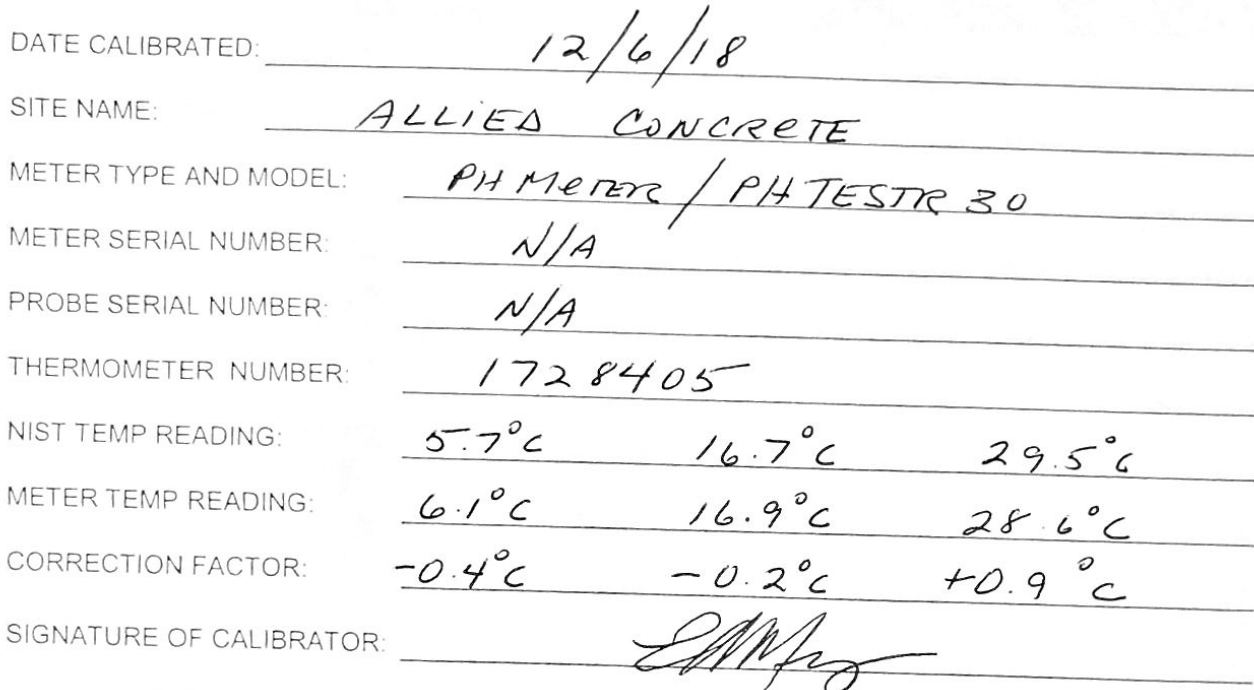 DATE CALIBRATED: 12/6/18
SITE NAME: ALLIED CONCRETE
METER TYPE AND MODEL: PH METER / PH TESTR 30
METER SERIAL NUMBER: N/A
PROBE SERIAL NUMBER: N/A
THERMOMETER NUMBER: 1728405
NIST TEMP READING: 5.7°C 16.7°C 29.5°C
METER TEMP READING: 6.1°C 16.9°C 28.6°C
CORRECTION FACTOR: -0.4°C -0.2°C +0.9°C
SIGNATURE OF CALIBRATOR: